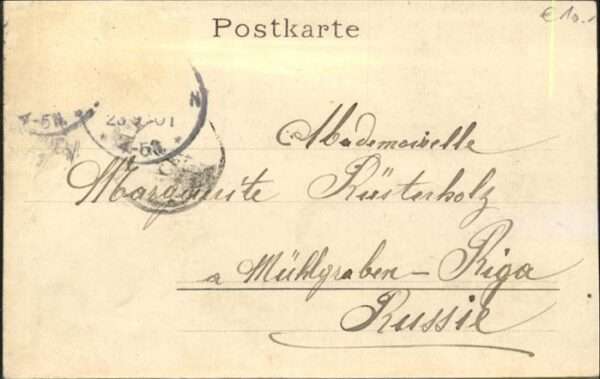 Postkarte
€ 10.-
N
4-5N.
4-5N.
Mademoiselle
Marguerite Rüsterholz
a Mühlgraben - Riga
Russie